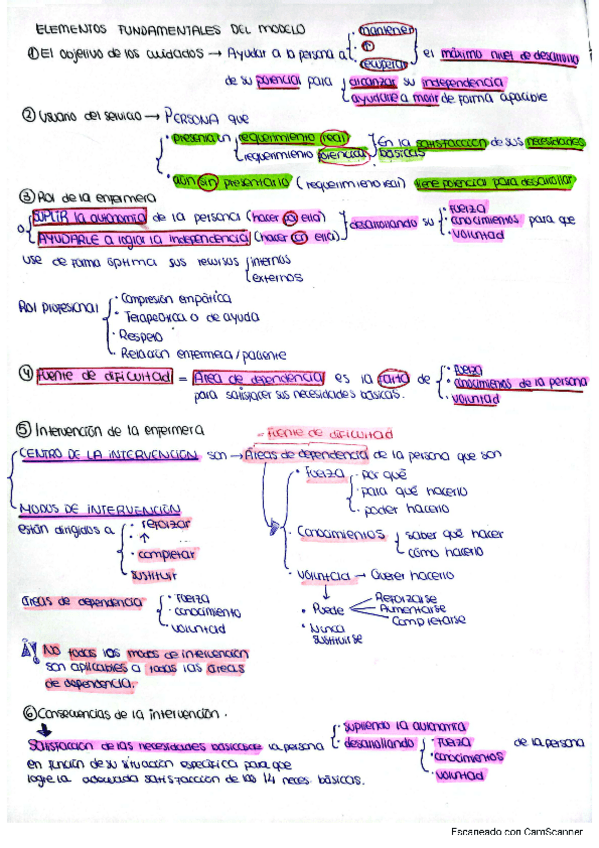 ELEMENTOS FUNDAMENTALES DEL MODELO
① El objetivo de los cuidados → Ayudar a la persona a { · mantener · ↑ · recuperar } el máximo nivel de desarrollo
de su potencial para { alcanzar su independencia
ayudarle a morir de forma apacible
② Usuario del servicio → PERSONA que
· presenta un { requerimiento (real)
requerimiento potencial } En la satisfacción de sus necesidades básicas
· aún sin presentarlo (requerimiento real) tiene potencial para desarrollar
③ Rol de la enfermera
a { SUPLIR la autonomía de la persona (hacer por ella)
AYUDARLE a lograr la independencia (hacer con ella) } desarrollando su { · fuerza · conocimientos · voluntad para que
use de forma óptima sus recursos { internos
externos
Rol profesional { · Compresión empática
· Terapeútica o de ayuda
· Respeto
· Relación enfermera/paciente
④ Fuente de dificultad = Área de dependencia es la falta de { · fuerza
· conocimientos de la persona
· voluntad
para satisfacer sus necesidades básicas.
⑤ Intervención de la enfermera
= Fuente de dificultad
CENTRO DE LA INTERVENCIÓN son → Áreas de dependencia de la persona que son
· Fuerza { · por qué
· para qué hacerlo
· poder hacerlo
MODOS DE INTERVENCIÓN
están dirigidos a { · reforzar
· ↑
· completar
· sustituir
· Conocimientos { saber qué hacer
cómo hacerlo
· Voluntad → Querer hacerlo
· Puede
Reforzarse
Aumentarse
Completarse
· Nunca sustituirse
áreas de dependencia { · Fuerza
· conocimiento
· voluntad
¡! No todos los modos de intervención
son aplicables a todas las áreas
de dependencia.
⑥ Consecuencias de la intervención.
↓
Satisfacción de las necesidades básicas de la persona { · supliendo la autonomía
· desarrollando { · Fuerza
· conocimientos
· voluntad
de la persona
en función de su situación específica para que
logre la adecuada satisfacción de las 14 neces. básicas.
Escaneado con CamScanner